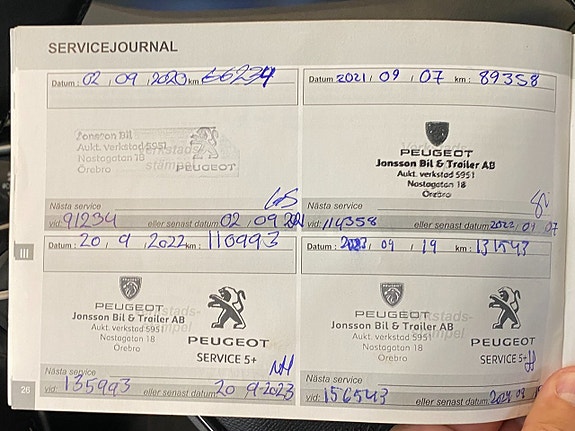 SERVICEJOURNAL
Datum: 02, 09, 2020 km: 66234
Jonsson Bil
Aukt. verkstad 5951
Nastagatan 18
Örebro
PEUGEOT
Nästa service
vid: 91234 eller senast datum: 02, 09, 2021
Datum: 2021, 09, 07 km: 89358
PEUGEOT
Jonsson Bil & Trailer AB
Aukt. verkstad 5951
Nastagatan 18
Örebro
Nästa service
vid: 114358 eller senast datum: 07
Datum: 20, 9, 2022 km: 110993
PEUGEOT
Jonsson Bil & Trailer AB
Aukt. verkstad 5951
Nastagatan 18
Örebro
PEUGEOT
SERVICE 5+
Nästa service
vid: 135993 eller senast datum: 20 9-2023
Datum: 2023, 09, 19 km: 131543
PEUGEOT
Jonsson Bil & Trailer AB
Aukt. verkstad 5951
Nastagatan 18
Örebro
PEUGEOT
SERVICE 5+
Nästa service
vid: 156543 eller senast datum: 2024
III
26